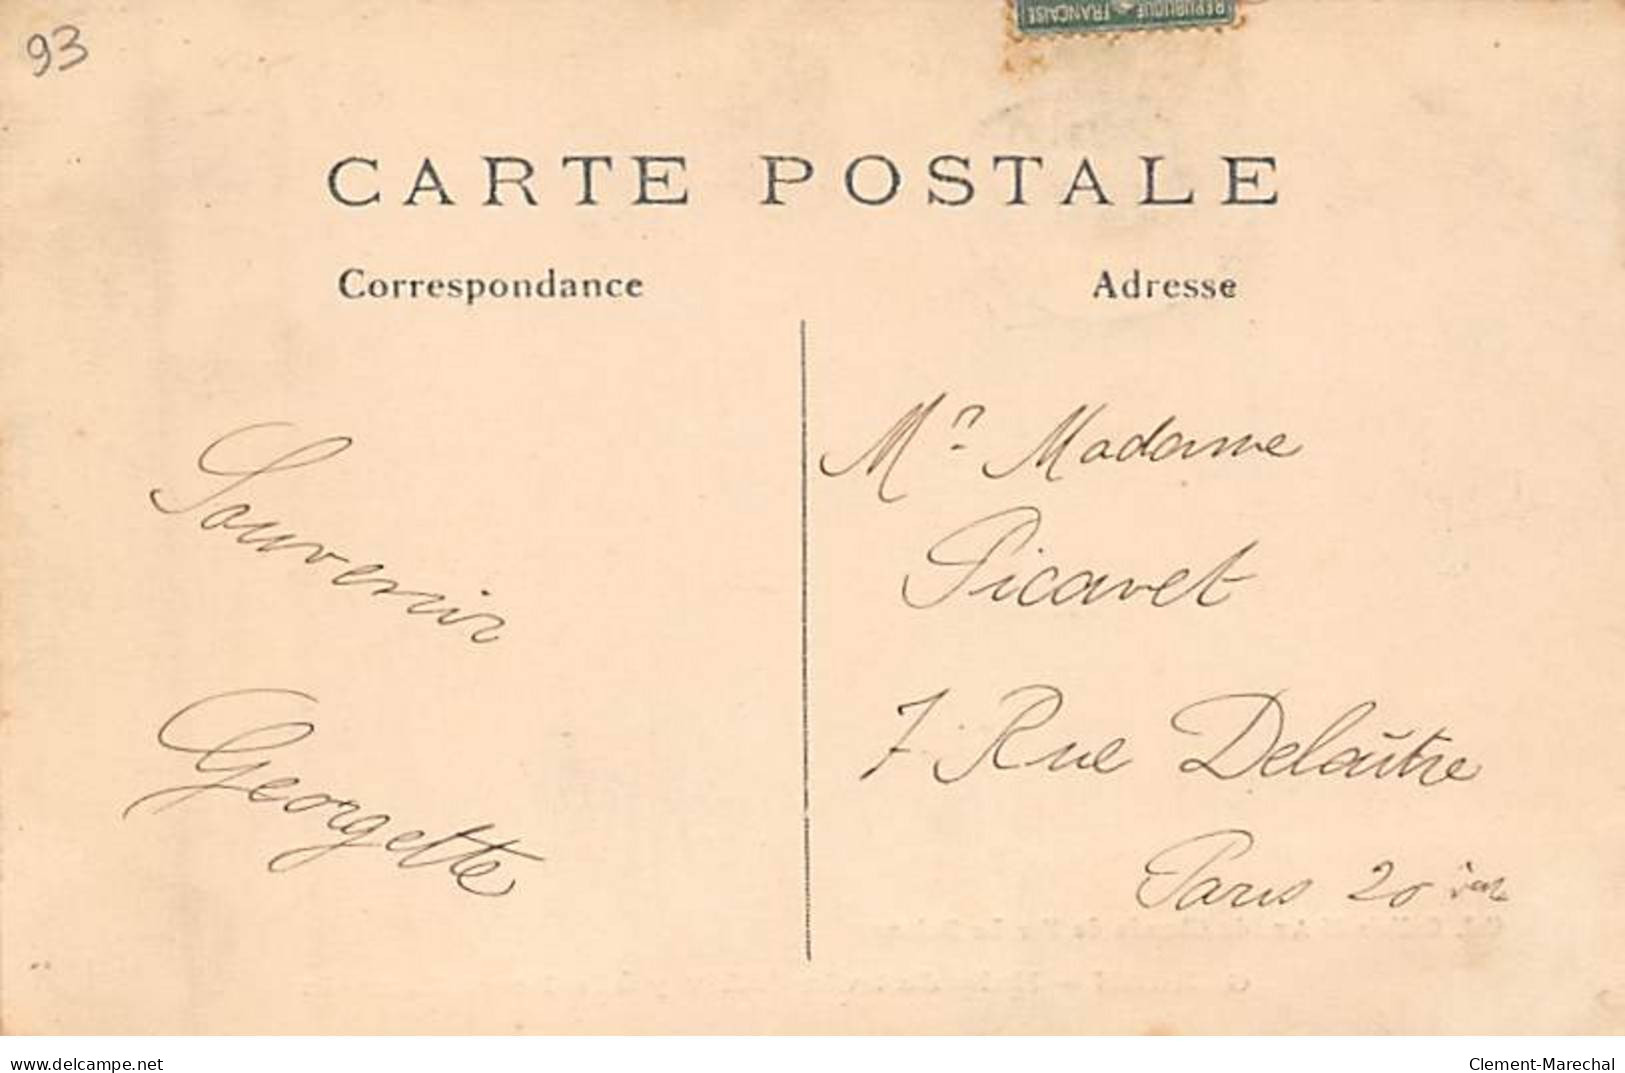 93
RÉPUBLIQUE FRANÇAISE
CARTE POSTALE
Correspondance
Adresse
Souvenir
Georgette
Mr Madame
Picavet
7 Rue Delaitre
Paris 20 ème
www.delcampe.net
Clement-Marechal